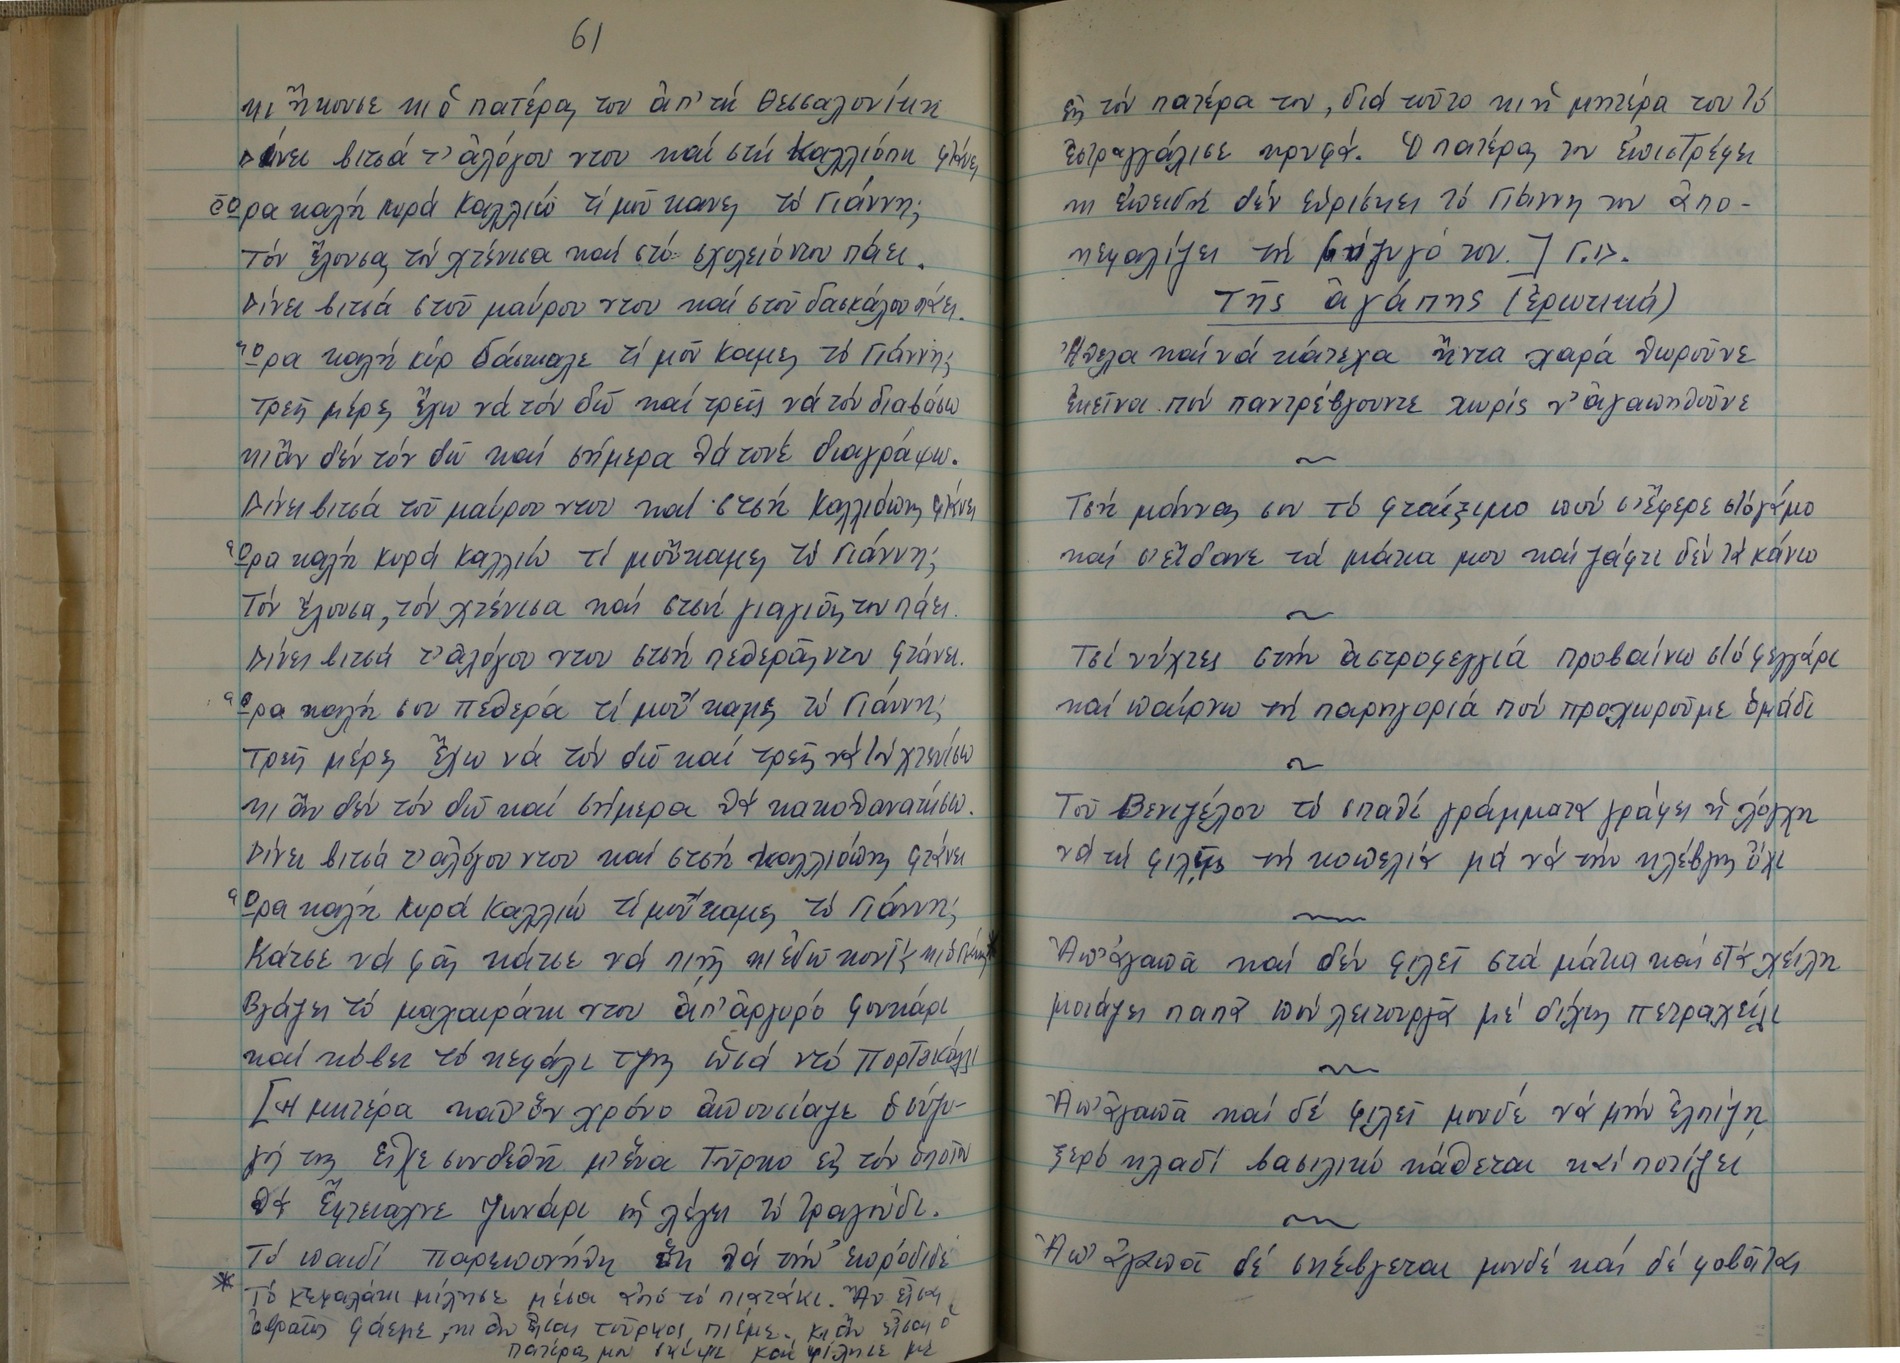 61
κι ἤκουσε κι ὁ πατέρας του ἀπ' τή Θεσσαλονίκη
Δίνει βιτσά τ' ἀλόγου ντου καί στή Καλλιόπη φτάνει
Ὥρα καλή κυρά Καλλιώ τί μοῦ κανες τό Γιάννη;
Τόν ἔλουσα, τόν χτένισα καί στό σχολειό ντου πάει.
Δίνει βιτσά στοῦ μαύρου ντου καί στοῦ δασκάλου πάει.
Ὥρα καλή κύρ δάσκαλε τί μοῦ καμες τό Γιάννη;
Τρεῖς μέρες ἔχω νά τόν δῶ καί τρεῖς νά τόν διαβάσω
κι ἄν δέν τόν δῶ καί σήμερα θά τονέ διαγράψω.
Δίνει βιτσά τοῦ μαύρου ντου καί στσή Καλλιόπης φτάνει
Ὥρα καλή κυρά Καλλιώ τί μοὔκαμες τό Γιάννη;
Τόν ἔλουσα, τόν χτένισα καί στσή γιαγιᾶς του πάει.
Δίνει βιτσά τ' ἀλόγου ντου στσή πεθερᾶς ντου φτάνει.
Ὥρα καλή σου πεθερά τί μοὔ καμες τό Γιάννη;
Τρεῖς μέρες ἔχω νά τόν δῶ καί τρεῖς νά τόν χτενίσω
κι ἄν δέν τόν δῶ καί σήμερα θά κακοθανατίσω.
Δίνει βιτσά τ' ἀλόγου ντου καί στσή Καλλιόπης φτάνει
Ὥρα καλή κυρά Καλλιώ τί μοὔ καμες τό Γιάννη;
Κάτσε νά φᾶς κάτσε νά πιῇς κι ἐδῶ κοντά κι ὁ Γιάννης *
Βγάζει τό μαχαιράκι ντου ἀπ' ἀργυρό φουκάρι
καί κόβει τό κεφάλι τζης ὡσά ντό πορτοκάλι
[Ἡ μητέρα καθ' ὅν χρόνο ἀπουσίαζε ὁ σύζυ-
γός της εἶχε συνδεθῆ μ' ἕνα Τοῦρκο εἰς τόν ὁποῖον
θά ἔφτειαχνε ζωνάρι ὡς λέγει τό τραγούδι.
Τό παιδί παρεπονήθη ὅτι θά τήν ἐπρόδιδε
* Τό κεφαλάκι μίλησε μέσα ἀπό τό πιατάκι. Ἄν εἶσαι
ὀβραῖος φάεμε, κι ἄν εἶσαι τοῦρκος πιέμε, κι ἄν εἶσαι ὁ
πατέρας μου σκύψε καί φίλησέ με
εἰς τόν πατέρα του, διά τοῦτο κι ἡ μητέρα του τό
ἐστραγγάλισε κρυφά. Ὁ πατέρας του ἐπιστρέφει
κι ἐπειδή δέν εὑρίσκει τό Γιάννη του ἀπο-
κεφαλίζει τή σύζυγό του.] Γ.Δ.
Τῆς ἀγάπης (ἐρωτικά)
Ἤθελα καί νά κάτεχα ἤντα χαρά θωροῦνε
ἐκεῖνα πού παντρέβγουντε χωρίς ν' ἀγαπηθοῦνε
Τσή μάννας σου τό φταίξιμο πού σ' ἔφερε στό γάμο
καί σ' εἴδανε τά μάτια μου καί γιάφτι δέν τά κάνω
Τσί νύχτες στήν ἀστροφεγγιά προβαίνω στό φεγγάρι
καί παίρνω τή παρηγοριά πού προχωροῦμε ὁμάδι
Τοῦ Βενιζέλου τό σπαθί γράμματα γράφει ἡ λόγχη
νά τή φιλεῖς τή κοπελιά μά νά τήν κλέβγης ὄχι
Ἀπ' ἀγαπᾶ καί δέν φιλεῖ στά μάτια καί στά χείλη
μοιάζει παπά πού λειτουργᾶ μέ δίχως πετραχείλι
Ἀπ' ἀγαπᾶ καί δέ φιλεῖ μουδέ νά μήν ἐλπίζη
ξερό κλαδί βασιλικό κάθεται καί ποτίζει
Ἀπ' ἀγαπᾶ δέ σκέβγεται μουδέ καί δέ φοβᾶται